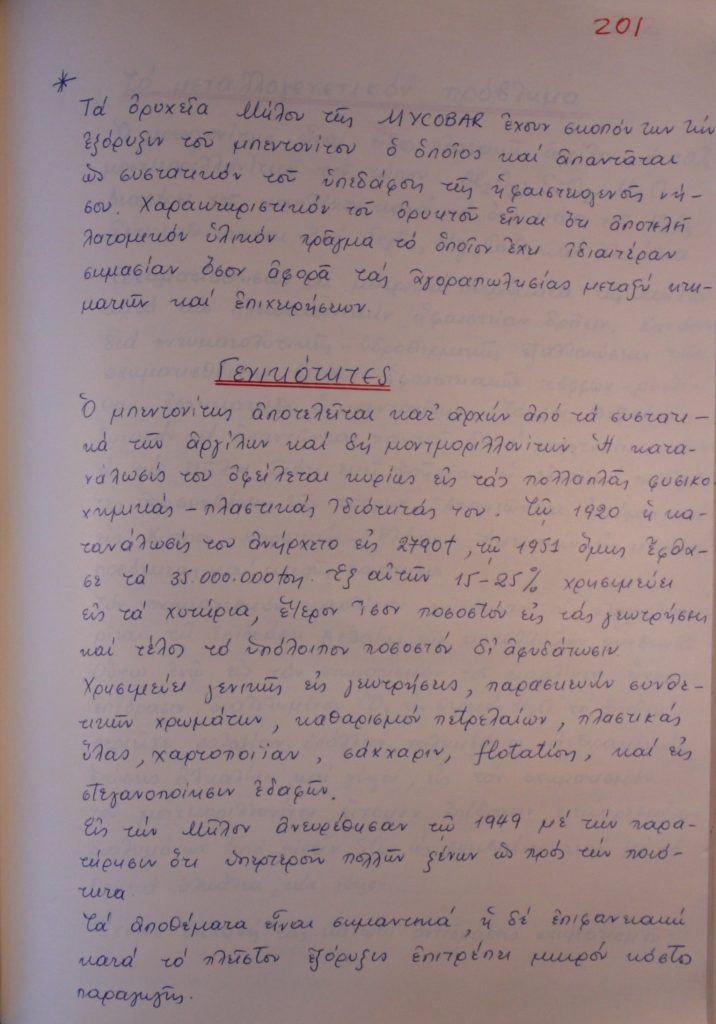 201
* Τά ὀρυχεῖα Μήλου τῆς MYCOBAR ἔχουν σκοπόν των τήν
ἐξόρυξιν τοῦ μπεντονίτου ὁ ὁποῖος καί ἀπαντᾶται
ὡς συστατικόν τοῦ ὑπεδάφους τῆς ἡφαιστειογενοῦς νή-
σου. Χαρακτηριστικόν τοῦ ὀρυκτοῦ εἶναι ὅτι ἀποτελῆ
λατομικόν ὑλικόν πρᾶγμα τό ὁποῖον ἔχει ἰδιαιτέραν
σημασίαν ὅσον ἀφορᾶ τάς ἀγοραπωλησίας μεταξύ κτη-
ματιῶν καί ἐπιχειρήσεων.
Γενικότητες
Ὁ μπεντονίτης ἀποτελεῖται κατ' ἀρχήν ἀπό τά συστατι-
κά τῶν ἀργίλων καί δή μοντμοριλλονίτην. Ἡ κατα-
νάλωσίς του ὀφείλεται κυρίως εἰς τάς πολλαπλᾶς φυσικο-
χημικάς - πλαστικάς ἰδιότητάς του. Τῷ 1920 ἡ κα-
τανάλωσίς του ἀνήρχετο εἰς 2790t, τῷ 1951 ὅμως ἔφθα-
σε τά 35.000.000 tος. Ἐξ αὐτῶν 15-25% χρησιμεύει
εἰς τά χυτήρια, ἕτερον ἴσον ποσοστόν εἰς τάς γεωτρήσεις
καί τέλος τό ὑπόλοιπον ποσοστόν δι' ἀφυδάτωσιν.
Χρησιμεύει γενικῶς εἰς γεωτρήσεις, παρασκευήν συνθε-
τικῶν χρωμάτων, καθαρισμόν πετρελαίων, πλαστικάς
ὕλας, χαρτοποιΐαν, σάκχαριν, flotation, καί εἰς
στεγανοποίησιν ἐδαφῶν.
Εἰς τήν Μῆλον ἀνευρέθησαν τῷ 1949 μέ τήν παρα-
τήρησιν ὅτι ὑπερτεροῦν πολλῶν ξένων ὡς πρός τήν ποιό-
τητα.
Τά ἀποθέματα εἶναι σημαντικά, ἡ δέ ἐπιφανειακή
κατά τό πλεῖστον ἐξόρυξις ἐπιτρέπει μικρόν κόστος
παραγωγῆς.